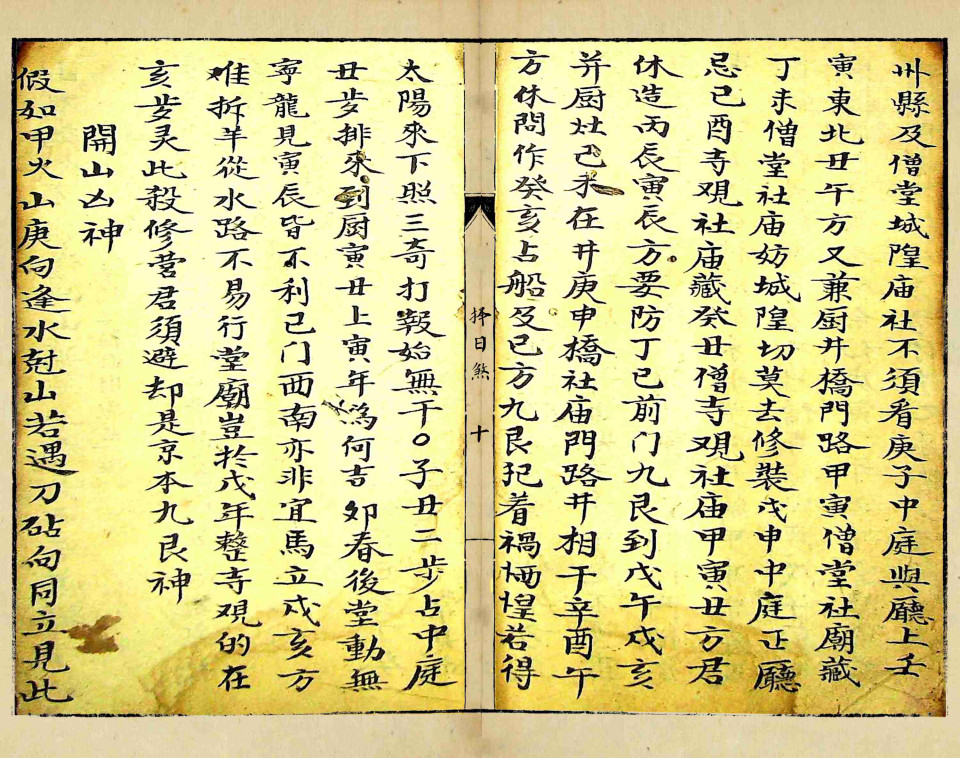 州縣及僧堂城隍庙社不須看庚子中庭與廳上壬
寅東北丑午方又兼厨井橋門路甲寅僧堂社廟藏
丁未僧堂社庙妨城隍切莫去修裝戊申中庭正廳
忌己酉寺观社庙藏癸丑僧寺观社庙甲寅丑方君
休造丙辰寅辰方要防丁巳前门九艮到戊午戌亥
并厨灶己未在井庚申橋社庙門路井相干辛酉午
方休問作癸亥占船及巳方九艮犯着禍恓惶若得
擇日煞
十
太陽來下照三奇打報始無干○子丑二步占中庭
丑步排來到厨寅丑上寅年為何吉卯春後堂動無
寧龍見寅辰皆不利己门西南亦非宜馬立戌亥方
难拆羊從水路不易行堂廟豈於戊年整寺观的在
亥步灵此殺修营君須避却是京本九艮神
開山凶神
假如甲火山庚向逢水尅山若遇刀砧向同立見此